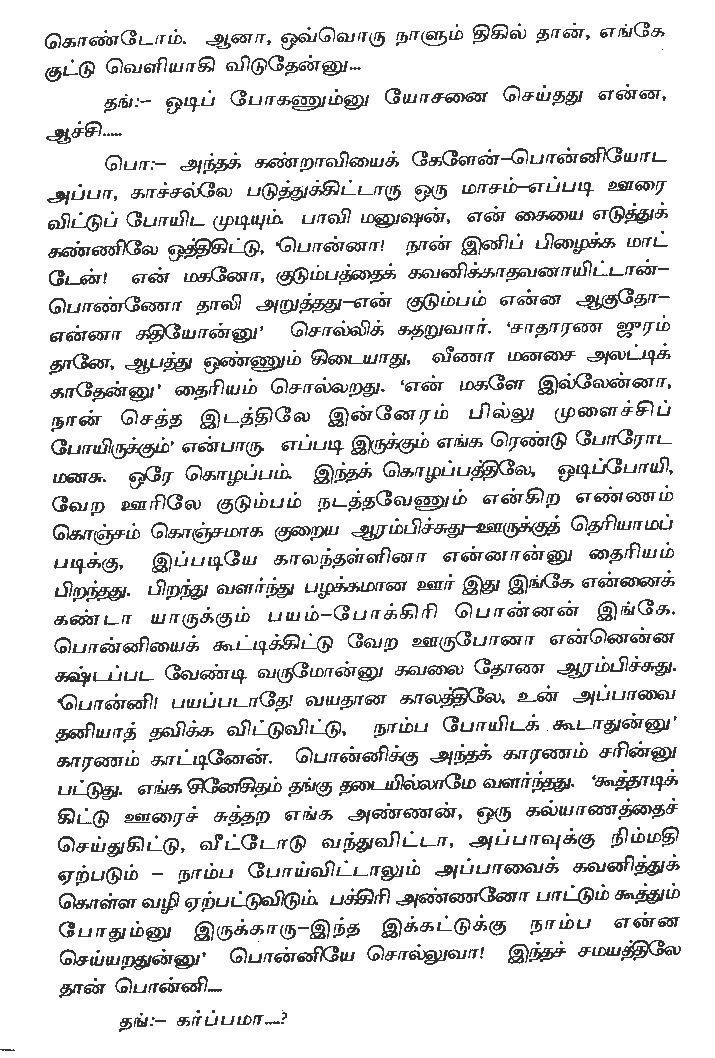 கொண்டோம். ஆனா, ஒவ்வொரு நாளும் திகில் தான், எங்கே
குட்டு வெளியாகி விடுதேன்னு...
தங்:– ஒடிப் போகணும்னு யோசனை செய்தது என்ன,
ஆச்சி.....
பொ:– அந்தக் கண்றாவியைக் கேளேன்–பொன்னியோட
அப்பா, காச்சல்லே படுத்துக்கிட்டாரு ஒரு மாசம்–எப்படி ஊரை
விட்டுப் போயிட முடியும். பாவி மனுஷன், என் கையை எடுத்துக்
கண்ணிலே ஒத்திகிட்டு, 'பொன்னா! நான் இனிப் பிழைக்க மாட்
டேன்! என் மகனோ, குடும்பத்தைக் கவனிக்காதவனாயிட்டான்–
பொண்ணோ தாலி அறுத்தது–என் குடும்பம் என்ன ஆகுதோ–
என்னா கதியோன்னு' சொல்லிக் கதறுவார். 'சாதாரண ஜுரம்
தானே, ஆபத்து ஒண்ணும் கிடையாது, வீணா மனசை அலட்டிக்
காதேன்னு' தைரியம் சொல்லறது. 'என் மகளே இல்லேன்னா,
நான் செத்த இடத்திலே இன்னேரம் பில்லு முளைச்சிப்
போயிருக்கும்' என்பாரு. எப்படி இருக்கும் எங்க ரெண்டு போரோட
மனசு. ஒரே கொழப்பம். இந்தக் கொழப்பத்திலே, ஒடிப்போயி,
வேற ஊரிலே குடும்பம் நடத்தவேணும் என்கிற எண்ணம்
கொஞ்சம் கொஞ்சமாக குறைய ஆரம்பிச்சுது–ஊருக்குத் தெரியாமப்
படிக்கு, இப்படியே காலந்தள்ளினா என்னான்னு தைரியம்
பிறந்தது. பிறந்து வளர்ந்து பழக்கமான ஊர் இது இங்கே என்னைக்
கண்டா யாருக்கும் பயம்–போக்கிரி பொன்னன் இங்கே.
பொன்னியைக் கூட்டிக்கிட்டு வேற ஊருபோனா என்னென்ன
கஷ்டப்பட வேண்டி வருமோன்னு கவலை தோண ஆரம்பிச்சுது.
'பொன்னி! பயப்படாதே! வயதான காலத்திலே, உன் அப்பாவை
தனியாத் தவிக்க விட்டுவிட்டு, நாம்ப போயிடக் கூடாதுன்னு'
காரணம் காட்டினேன். பொன்னிக்கு அந்தக் காரணம் சரின்னு
பட்டுது. எங்க சினேகிதம் தங்கு தடையில்லாமே வளர்ந்தது. 'கூத்தாடிக்
கிட்டு ஊரைச் சுத்தற எங்க அண்ணன், ஒரு கல்யாணத்தைச்
செய்துகிட்டு, வீட்டோடு வந்துவிட்டா, அப்பாவுக்கு நிம்மதி
ஏற்படும் – நாம்ப போய்விட்டாலும் அப்பாவைக் கவனித்துக்
கொள்ள வழி ஏற்பட்டுவிடும். பக்கிரி அண்ணனோ பாட்டும் கூத்தும்
போதும்னு இருக்காரு–இந்த இக்கட்டுக்கு நாம்ப என்ன
செய்யறதுன்னு' பொன்னியே சொல்லுவா! இந்தச் சமயத்திலே
தான் பொன்னி....
தங்:– கர்ப்பமா....?